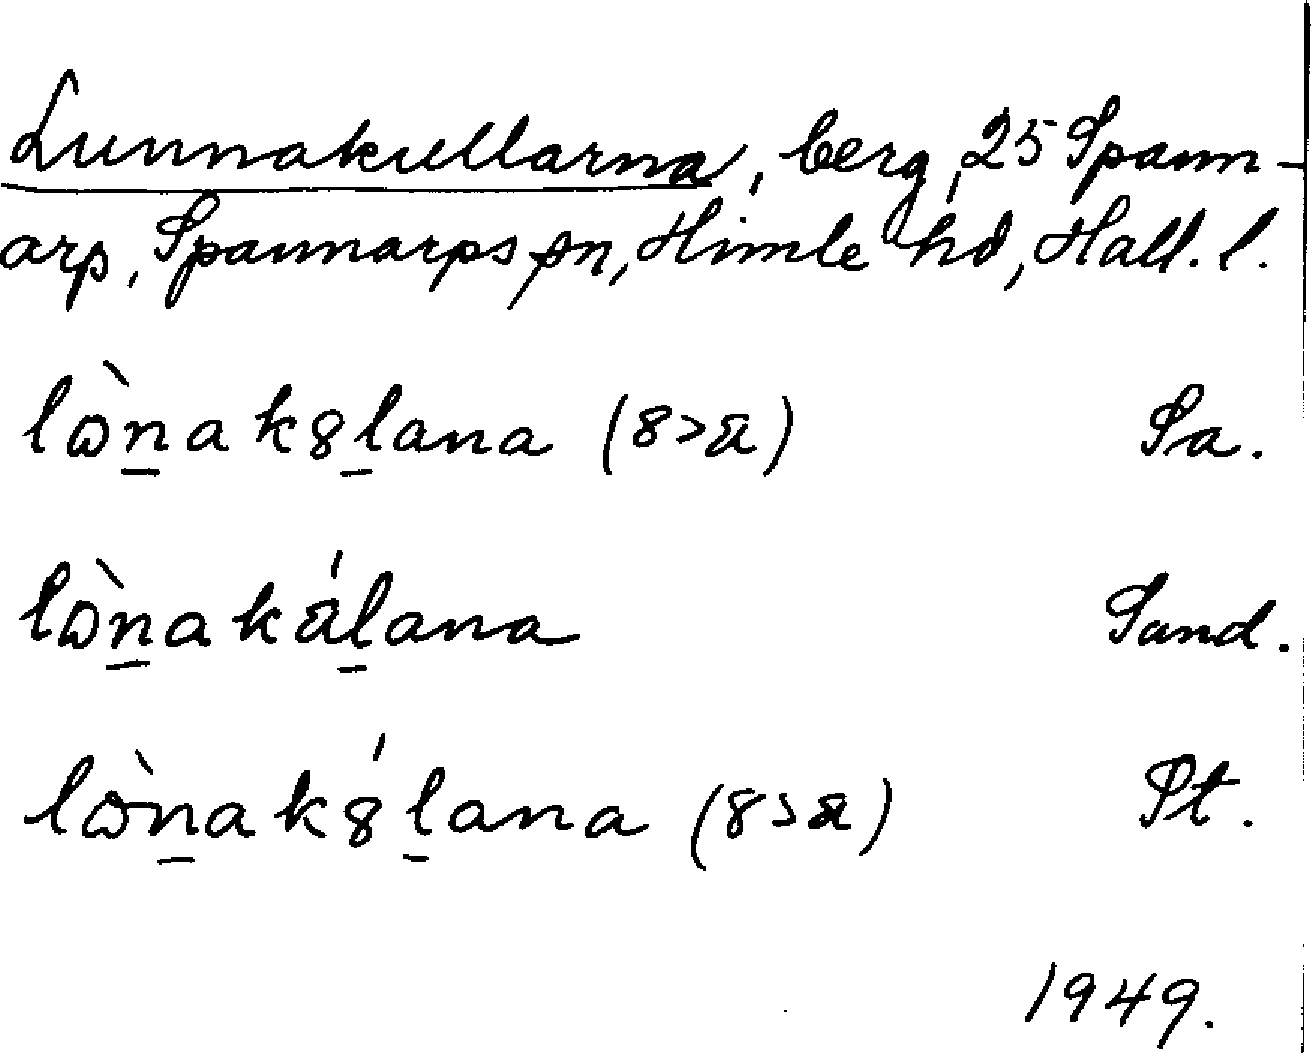 Lunnakullarna, berg, 25 Spann-
arp, Spannarps sn, Himle hd, Hall. l.
lɷ̀n̲ak8l̲ana (8>a) Sa.
lɷ̀n̲akál̲ana Sand.
lɷ̀n̲ak8́l̲ana (8>a) Pt.
1949.